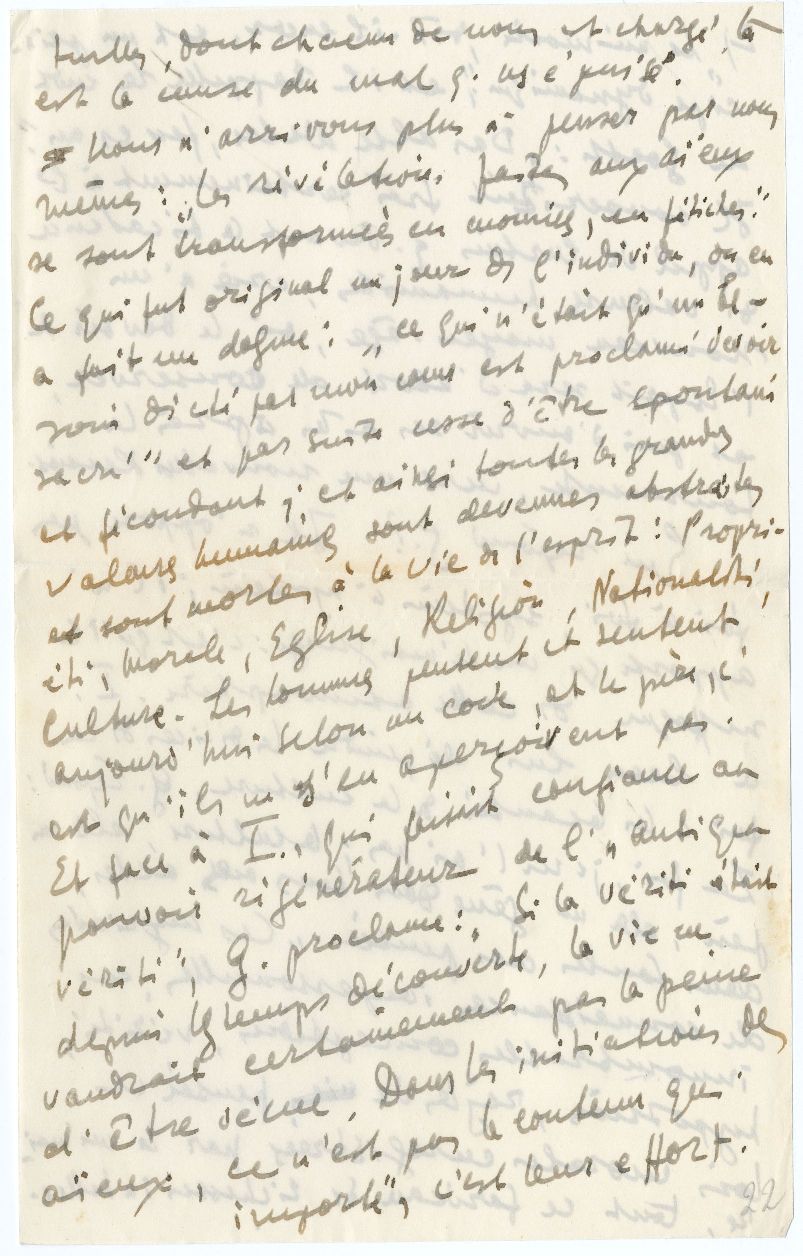 tuelles, dont chacun de nous est chargé, là
est la cause du mal q. ns épuise".
Nous n'arrivons plus à penser par nous
mêmes : "les révélations faites aux aïeux
se sont transformées en momies, en fétiches."
Ce qui fut original un jour ds l'individu, on en
a fait un dogme : „ce qui n'était qu'un be-
soin dicté par mon cœur est proclamé devoir
sacré" et par suite cesse d'être spontané
et fécondant ; et ainsi toutes les grandes
valeurs humaines sont devenues abstraites
et sont mortes à la vie de l'esprit : Propri-
été, Morale, Eglise, Religion, Nationalité,
Culture. Les hommes pensent et sentent
aujourd'hui selon un code, et le pire, c'
est qu'ils ne s'en aperçoivent pas.
Et face à I., qui faisait confiance au
pouvoir régénérateur de l'„antique
vérité", G. proclame : „Si la vérité était
depuis longtemps découverte, la vie ne
vaudrait certainement pas la peine
d'être vécue. Dans les initiations des
aïeux, ce n'est pas le contenu qui
importe", c'est leur effort.
22